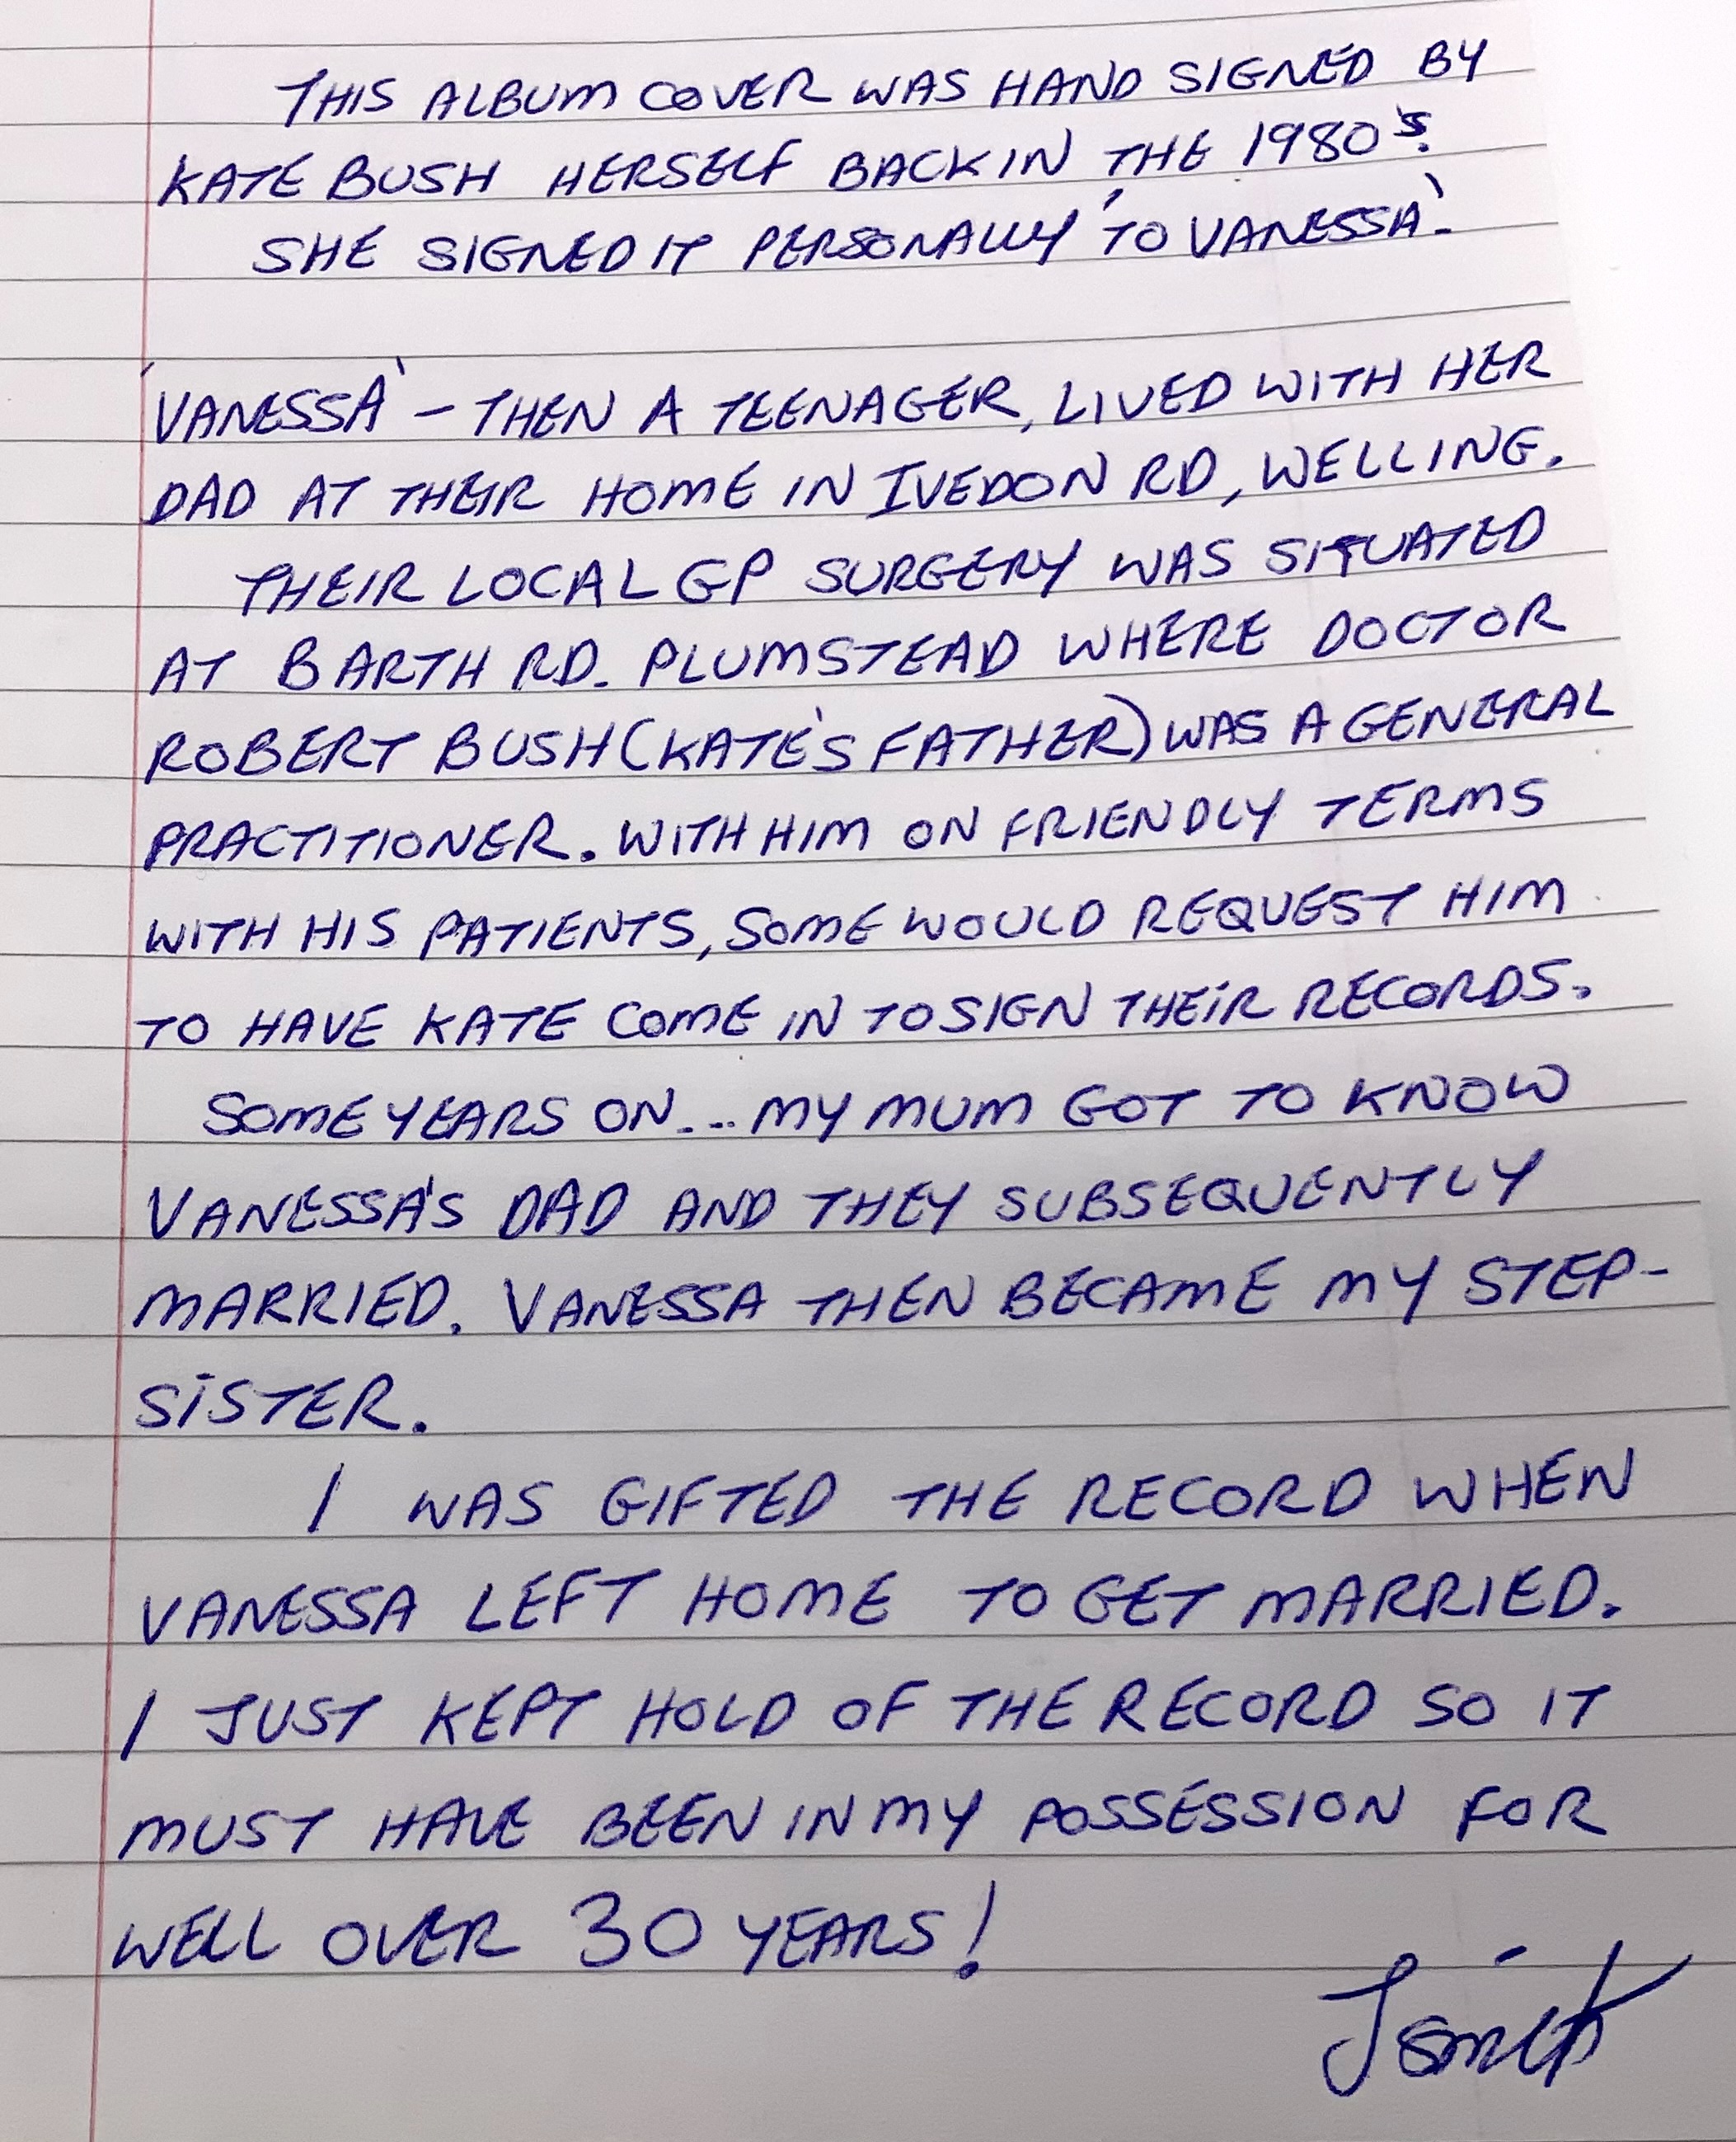 THIS ALBUM COVER WAS HAND SIGNED BY
KATE BUSH HERSELF BACK IN THE 1980's.
SHE SIGNED IT PERSONALLY 'TO VANESSA'.
'VANESSA' - THEN A TEENAGER, LIVED WITH HER
DAD AT THEIR HOME IN IVEDON RD, WELLING.
THEIR LOCAL GP SURGERY WAS SITUATED
AT BARTH RD. PLUMSTEAD WHERE DOCTOR
ROBERT BUSH (KATE'S FATHER) WAS A GENERAL
PRACTITIONER. WITH HIM ON FRIENDLY TERMS
WITH HIS PATIENTS, SOME WOULD REQUEST HIM
TO HAVE KATE COME IN TO SIGN THEIR RECORDS.
SOME YEARS ON... MY MUM GOT TO KNOW
VANESSA'S DAD AND THEY SUBSEQUENTLY
MARRIED. VANESSA THEN BECAME MY STEP-
SISTER.
I WAS GIFTED THE RECORD WHEN
VANESSA LEFT HOME TO GET MARRIED.
I JUST KEPT HOLD OF THE RECORD SO IT
MUST HAVE BEEN IN MY POSSESSION FOR
WELL OVER 30 YEARS!
J Smith